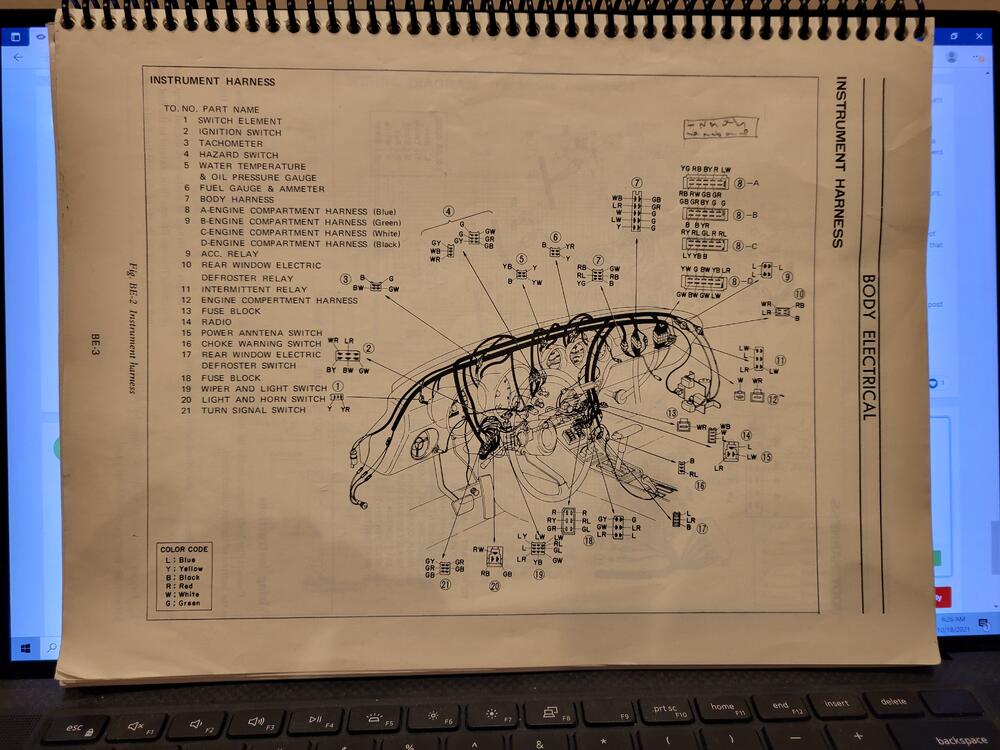 INSTRUMENT HARNESS
TO. NO. PART NAME
1 SWITCH ELEMENT
2 IGNITION SWITCH
3 TACHOMETER
4 HAZARD SWITCH
5 WATER TEMPERATURE
& OIL PRESSURE GAUGE
6 FUEL GAUGE & AMMETER
7 BODY HARNESS
8 A-ENGINE COMPARTMENT HARNESS (Blue)
9 B-ENGINE COMPARTMENT HARNESS (Green)
C-ENGINE COMPARTMENT HARNESS (White)
D-ENGINE COMPARTMENT HARNESS (Black)
9 ACC. RELAY
10 REAR WINDOW ELECTRIC
DEFROSTER RELAY
11 INTERMITTENT RELAY
12 ENGINE COMPERTMENT HARNESS
13 FUSE BLOCK
14 RADIO
15 POWER ANNTENA SWITCH
16 CHOKE WARNING SWITCH
17 REAR WINDOW ELECTRIC
DEFROSTER SWITCH
18 FUSE BLOCK
19 WIPER AND LIGHT SWITCH
20 LIGHT AND HORN SWITCH
21 TURN SIGNAL SWITCH
COLOR CODE
L : Blue
Y : Yellow
B : Black
R : Red
W : White
G : Green
1
Y YR
2
WR LR
BY BW GW
3
B G
BW GW
4
G
GY GY GW
WB GR
WR GB
5
YB Y
B YW
6
B YR
Y
7
RB GW
RL RB
YG B
7
WB GB
LR GR
W G
W G
LW L
Y
YG RB BY R LW
8-A
RB RW GB GR
GB GR BY G G
8-B
B B YR
RY RL GL R RL
8-C
LY YB B
YW G BW YB LR
8-D
GW BW GW LW
L
L
9
10
WR RB
LR B
11
LW L
LR LW
W WR
12
13
WR
WB
W
L
14
LW
15
LR
B
RL
16
L
LR
B
17
R R
RY RL
GR GL
18
GY G
GW LR
LR L
LY LW LW
RL
L GL
LR YB GW
19
RW
RB GB
20
GY GR
GR GB
GB
21
Fig. BE-2 Instrument harness
BE-3
INSTRUMENT HARNESS
BODY ELECTRICAL
8:26 AM
10/18/2021
esc
F1
F2
F3
F4
F5
F6
F7
F8
F9
prt sc
F10
home
F11
end
F12
insert
delete
backspace